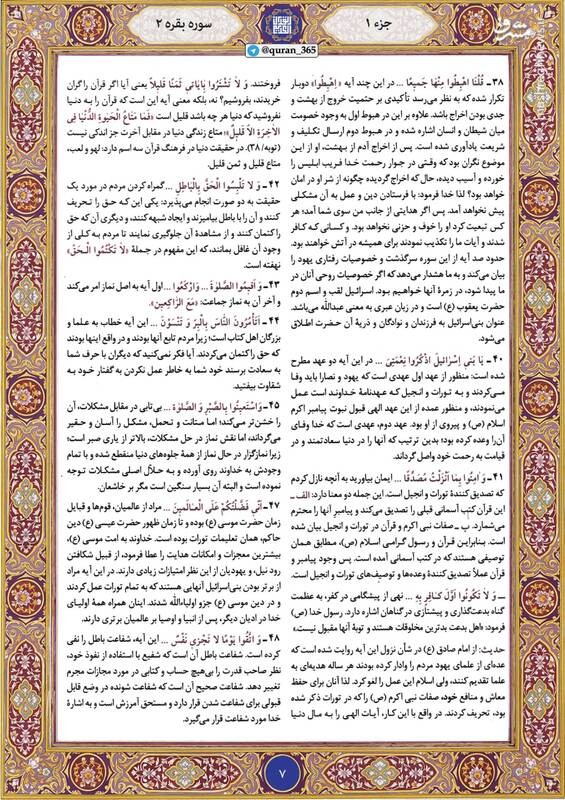 جزء ۱
سوره بقره ۲
@quran_365
۳۸ـ قُلْنَا اهْبِطُوا مِنْهَا جَمِیعًا ... در این چند آیه «اِهْبِطُوا» دوبار
تکرار شده که به نظر می‌رسد تأکیدی بر حتمیت خروج از بهشت و
جدی بودن اخراج باشد. علاوه بر این در هبوط اول به وجود خصومت
میان شیطان و انسان اشاره شده و در هبوط دوم ارسال تکلیف و
شریعت یادآوری شده است. پس از اخراج آدم از بهشت، او از این
موضوع نگران بود که وقتی در جوار رحمت خدا فریب ابلیس را
خورده و آسیب دیده، حال که اخراج گردیده چگونه از شرّ او در امان
خواهد بود؟ لذا خدا فرمود: با فرستادن دین و عمل به آن مشکلی
پیش نخواهد آمد. پس اگر هدایتی از جانب من سوی شما آمد؛ هر
کس تبعیت کرد او را خوف و حزنی نخواهد بود. و کسانی که کافر
شدند و آیات ما را تکذیب نمودند برای همیشه در آتش خواهند بود.
حدود صد آیه از این سوره سرگذشت و خصوصیات رفتاری یهود را
بیان می‌کند و به ما هشدار می‌دهد که اگر خصوصیات روحی آنان در
ما پیدا شود، در زمرهٔ آنها خواهیم بود. اسرائیل لقب و اسم دوم
حضرت یعقوب (ع) است و در زبان عبری به معنی عبدالله می‌باشد.
عنوان بنی‌اسرائیل به فرزندان و نوادگان و ذریهٔ آن حضرت اطلاق
می‌شود.
۴۰ـ یَا بَنِی إِسْرَائِیلَ اذْکُرُوا نِعْمَتِیَ ... در این آیه دو عهد مطرح
شده است: منظور از عهد اول عهدی است که یهود و نصارا باید وفا
می‌کردند و به تورات و انجیل که عهدنامهٔ خداوند است عمل
می‌نمودند، و منظور عمده از این عهد الهی قبول نبوت پیامبر اکرم
اسلام (ص) و پیروی از او بود. عهد دوم، عهدی است که خدا وفای
آن را وعده کرده بود؛ بدین ترتیب که آنها را در دنیا سعادتمند و در
قیامت به رحمت خود واصل گرداند.
۴۱ـ وَ آمِنُوا بِمَا أَنْزَلْتُ مُصَدِّقًا ... ایمان بیاورید به آنچه نازل کردم
که تصدیق کنندهٔ تورات و انجیل است. این جمله دو معنا دارد: الف ـ
این قرآن کتب آسمانی قبلی را تصدیق می‌کند و پیامبر آنها را محترم
می‌شمارد. ب ـ صفات نبی اکرم و قرآن در تورات و انجیل بیان شده
است. بنابراین قرآن و رسول گرامی اسلام (ص)، مطابق همان
توصیفی هستند که در کتب آسمانی آمده است. پس وجود پیامبر و
قرآن عملاً تصدیق کنندهٔ وعده‌ها و توصیف‌های تورات و انجیل است.
ـ وَ لَا تَکُونُوا أَوَّلَ کَافِرٍ بِهِ ... نهی از پیشگامی در کفر، به عظمت
گناه بدعت‌گذاری و پیشتازی در گناهان اشاره دارد. رسول خدا (ص)
فرمود: «اهل بدعت بدترین مخلوقات هستند و توبهٔ آنها مقبول نیست.»
حدیث: از امام صادق (ع) در شأن نزول این آیه روایت شده است که
عده‌ای از علمای یهود مردم را وادار کرده بودند هر ساله هدیه‌ای به
علما تقدیم کنند، ولی اسلام این عمل را لغو کرد. لذا آنان برای حفظ
معاش و منافع خود، صفات نبی اکرم (ص) را که در تورات ذکر شده
بود، تحریف کردند. در واقع با این کار، آیات الهی را به مال دنیا
فروختند. وَ لَا تَشْتَرُوا بِآیَاتِی ثَمَنًا قَلِیلاً یعنی آیا اگر قرآن را گران
خریدند، بفروشیم؟ نه، بلکه معنی آیه این است که قرآن را به دنیا
نفروشید که دنیا هر چه باشد قلیل است «فَمَا مَتَاعُ الْحَیَوةِ الدُّنْیَا فِی
الْآخِرَةِ إِلَّا قَلِیلٌ» متاع زندگی دنیا در مقابل آخرت جز اندکی نیست
(توبه/۳۸). در حقیقت دنیا در فرهنگ قرآن سه اسم دارد: لهو و لعب،
متاع قلیل و ثمن قلیل.
۴۲ـ وَ لَا تَلْبِسُوا الْحَقَّ بِالْبَاطِلِ ... گمراه کردن مردم در مورد یک
حقیقت به دو صورت انجام می‌پذیرد: یکی این که حق را تحریف
کنند و آن را با باطل بیامیزند و ایجاد شبهه کنند، و دیگری آن که حق
را کتمان کنند و از مشاهدهٔ آن جلوگیری نمایند تا مردم به کلی از
وجود آن غافل بمانند، که این مفهوم در جملهٔ «لَا تَکْتُمُوا الْحَقَّ»
نهفته است.
۴۳ـ وَ أَقِیمُوا الصَّلَوةَ ... وَ ارْکَعُوا ... اول آیه به اصل نماز امر می‌کند
و آخر آن به نماز جماعت: «مَعَ الرَّاکِعِینَ».
۴۴ـ أَتَأْمُرُونَ النَّاسَ بِالْبِرِّ وَ تَنْسَوْنَ ... این آیه خطاب به علما و
بزرگان اهل کتاب است؛ زیرا مردم تابع آنها بودند و در واقع اینها بودند
که حق را کتمان می‌کردند. آیا فکر نمی‌کنید که دیگران با حرف شما
به سعادت برسند خود شما به خاطر عمل نکردن به گفتار خود به
شقاوت بیفتید.
۴۵ـ وَ اسْتَعِینُوا بِالصَّبْرِ وَ الصَّلَوةِ ... بی‌تابی در مقابل مشکلات، آن
را خشن‌تر می‌کند؛ اما متانت و تحمل، مشکل را آسان و حقیر
می‌گرداند، اما نقش نماز در حل مشکلات، بالاتر از یاری صبر است؛
زیرا نمازگزار در حال نماز از همهٔ جلوه‌های دنیا منقطع شده و با تمام
وجودش به خداوند روی آورده و به حلّال اصلی مشکلات توجه
نموده است و البته آن بسیار سنگین است مگر بر خاشعان.
۴۷ـ أَنِّی فَضَّلْتُکُمْ عَلَی الْعَالَمِینَ ... مراد از عالمیان، قوم‌ها و قبایل
زمان حضرت موسی (ع) بوده و تا زمان ظهور حضرت عیسی (ع) دین
حاکم، همان تعلیمات تورات بوده است. خداوند به امت موسی (ع)،
بیشترین معجزات و امکانات هدایت را عطا فرمود، از قبیل شکافتن
رود نیل، و یهودیان از این نظر امتیازات زیادی دارند. در این آیه مراد
از برتر بودن بنی‌اسرائیل آنهایی هستند که به تمام تورات عمل کردند
و در دین موسی (ع) جزو اولیاءالله شدند. اینان همراه همهٔ اولیای
خدا در ادیان دیگر، پس از انبیا و اوصیا بر عالمیان برتری دارند.
۴۸ـ وَ اتَّقُوا یَوْمًا لَا تَجْزِی نَفْسٌ ... این آیه، شفاعت باطل را نفی
کرده است. شفاعت باطل آن است که شفیع با استفاده از نفوذ خود،
نظر صاحب قدرت را بی‌هیچ حساب و کتابی در مورد مجازات مجرم
تغییر دهد. شفاعت صحیح آن است که شفاعت شونده در وضع قابل
قبولی برای شفاعت شدن قرار دارد و مستحق آمرزش است و به اشارهٔ
خدا مورد شفاعت قرار می‌گیرد.
۷